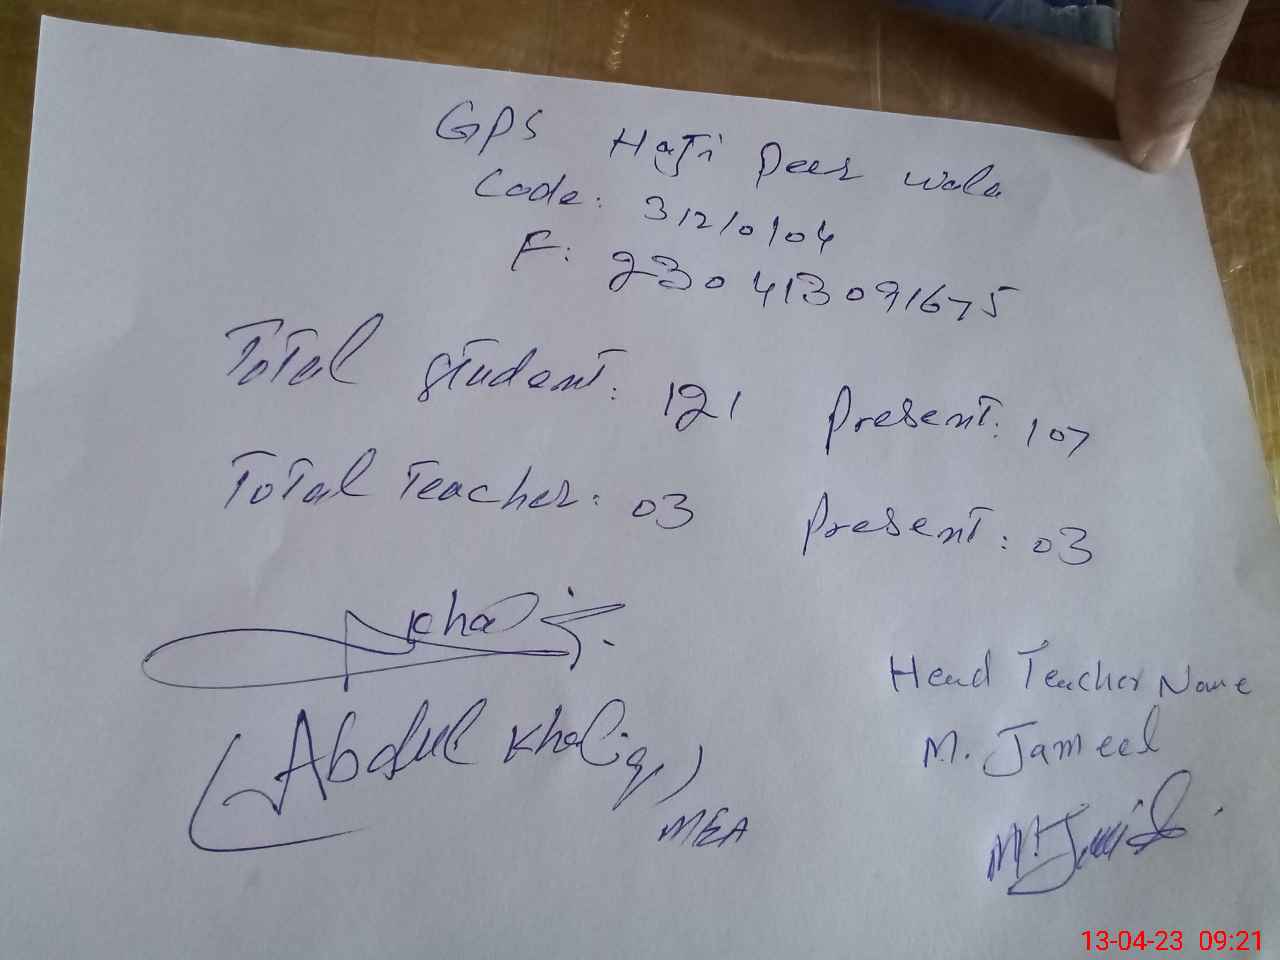 GPS Haji Peer wala
Code: 31210104
F: 230413091675
Total student: 121 Present: 107
Total Teacher: 03 Present: 03
Khaliq
(Abdul Khaliq)
MEA
Head Teacher Name
M. Jameel
13-04-23 09:21